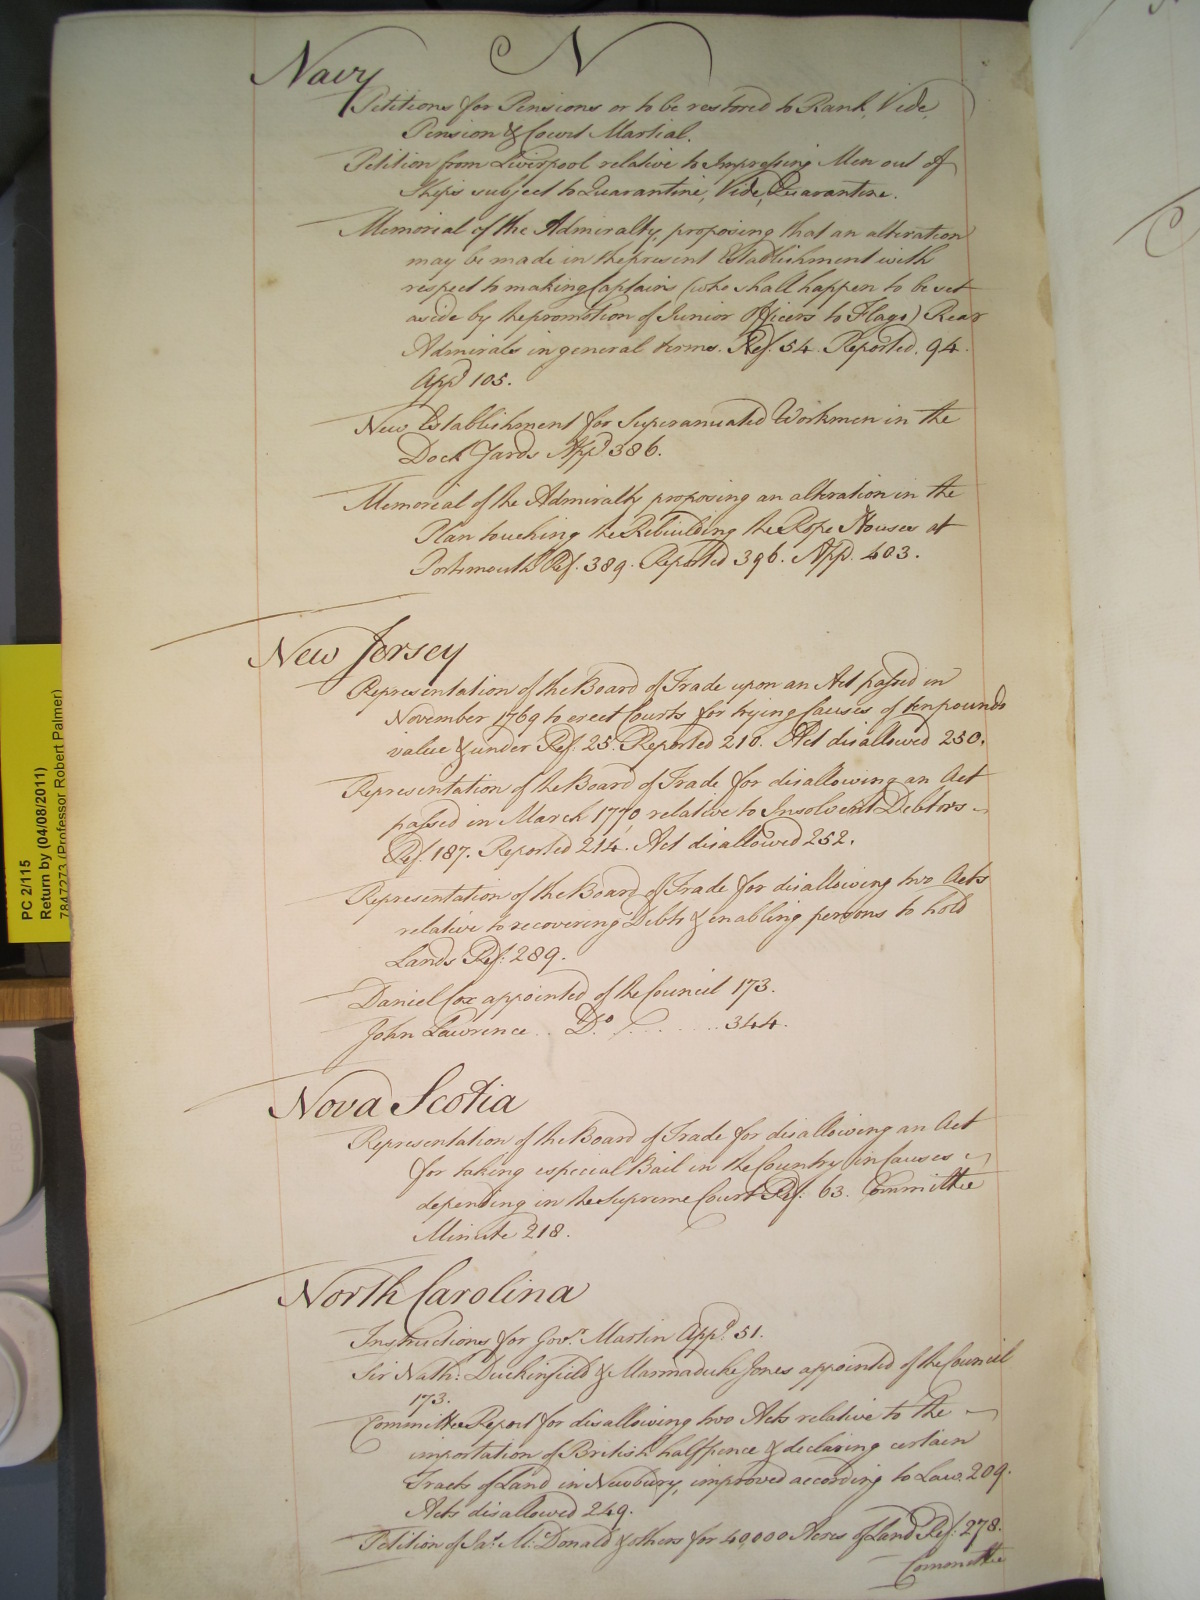 N
Navy
Petitions for Pensions or to be restored to Rank, Vide,
Pension & Court Martial.
Petition from Liverpool relative to Impressing Men out of
Ships subject to Quarantine, Vide, Quarantine.
Memorial of the Admiralty, proposing that an alteration
may be made in the present Establishment with
respect to making Captains (who shall happen to be set
aside by the promotion of Junior Officers to Flags) Rear
Admirals in general terms. Ref. 54. Reported. 94.
App.d 105.
New Establishment for Superanuated Workmen in the
Dock Yards App.d 386.
Memorial of the Admiralty proposing an alteration in the
Plan touching the Rebuilding the Rope Houses at
Portsmouth Ref. 389. Reported 396. App. 403.
New Jersey
Representation of the Board of Trade upon an Act passed in
November 1769 to erect Courts for trying Causes of ten pounds
value & under Ref. 25. Reported 210. Act disallowed 250.
Representation of the Board of Trade for disallowing an Act
passed in March 1770 relative to Insolvent Debtors
Ref. 187. Reported 214. Act disallowed 252.
Representation of the Board of Trade for disallowing two Acts
relative to recovering Debts & enabling persons to hold
Lands Ref: 289.
Daniel Cox appointed of the Council 173.
John Lawrence .. D.o ........ 344.
Nova Scotia
Representation of the Board of Trade for disallowing an Act
for taking especial Bail in the Country in Causes
depending in the Supreme Court Ref: 63. Committee
Minute 218.
North Carolina
Instructions for Gov.r Martin App.d 51.
Sir Nath: Duckinfield & Marmaduke Jones appointed of the Council
173.
Committee Report for disallowing two Acts relative to the
importation of British halfpence & declaring certain
Tracts of Land in Newbury, improved according to Law. 209.
Acts disallowed 249.
Petition of Ja.s Mc.Donald & others for 40,000 Acres of Land Ref: 278.
Committee
PC 2/115
Return by (04/08/2011)
7847273 (Professor Robert Palmer)